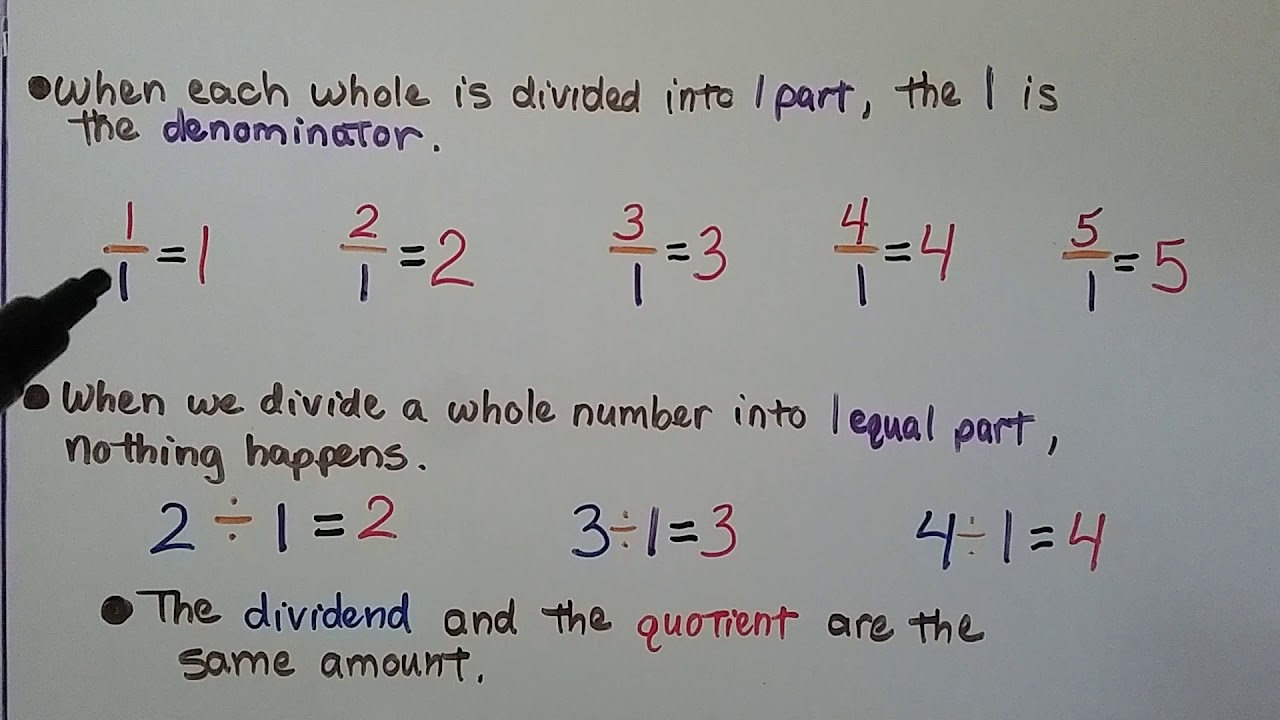 •When each whole is divided into 1 part, the 1 is
the denominator.
1/1 = 1 2/1 = 2 3/1 = 3 4/1 = 4 5/1 = 5
•When we divide a whole number into 1 equal part,
nothing happens.
2 ÷ 1 = 2 3 ÷ 1 = 3 4 ÷ 1 = 4
•The dividend and the quotient are the
same amount.